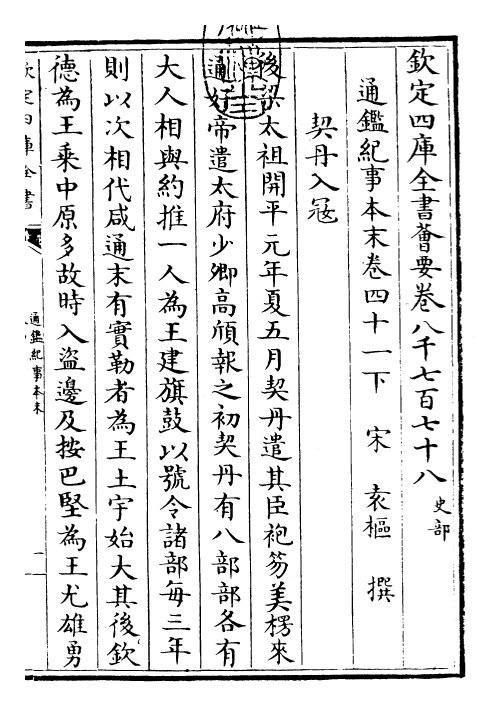 欽定四庫全書薈要卷八千七百七十八 史部
通鑑紀事本末卷四十一下 宋 袁樞 撰
契丹入寇
後梁太祖開平元年夏五月契丹遣其臣袍笏美楞來
通好帝遣太府少卿高頎報之初契丹有八部部各有
大人相與約推一人為王建旗鼓以號令諸部每三年
則以次相代咸通末有實勒者為王土宇始大其後欽
德為王乘中原多故時入盜邊及按巴堅為王尤雄勇
欽定四庫全書
通鑑紀事本末